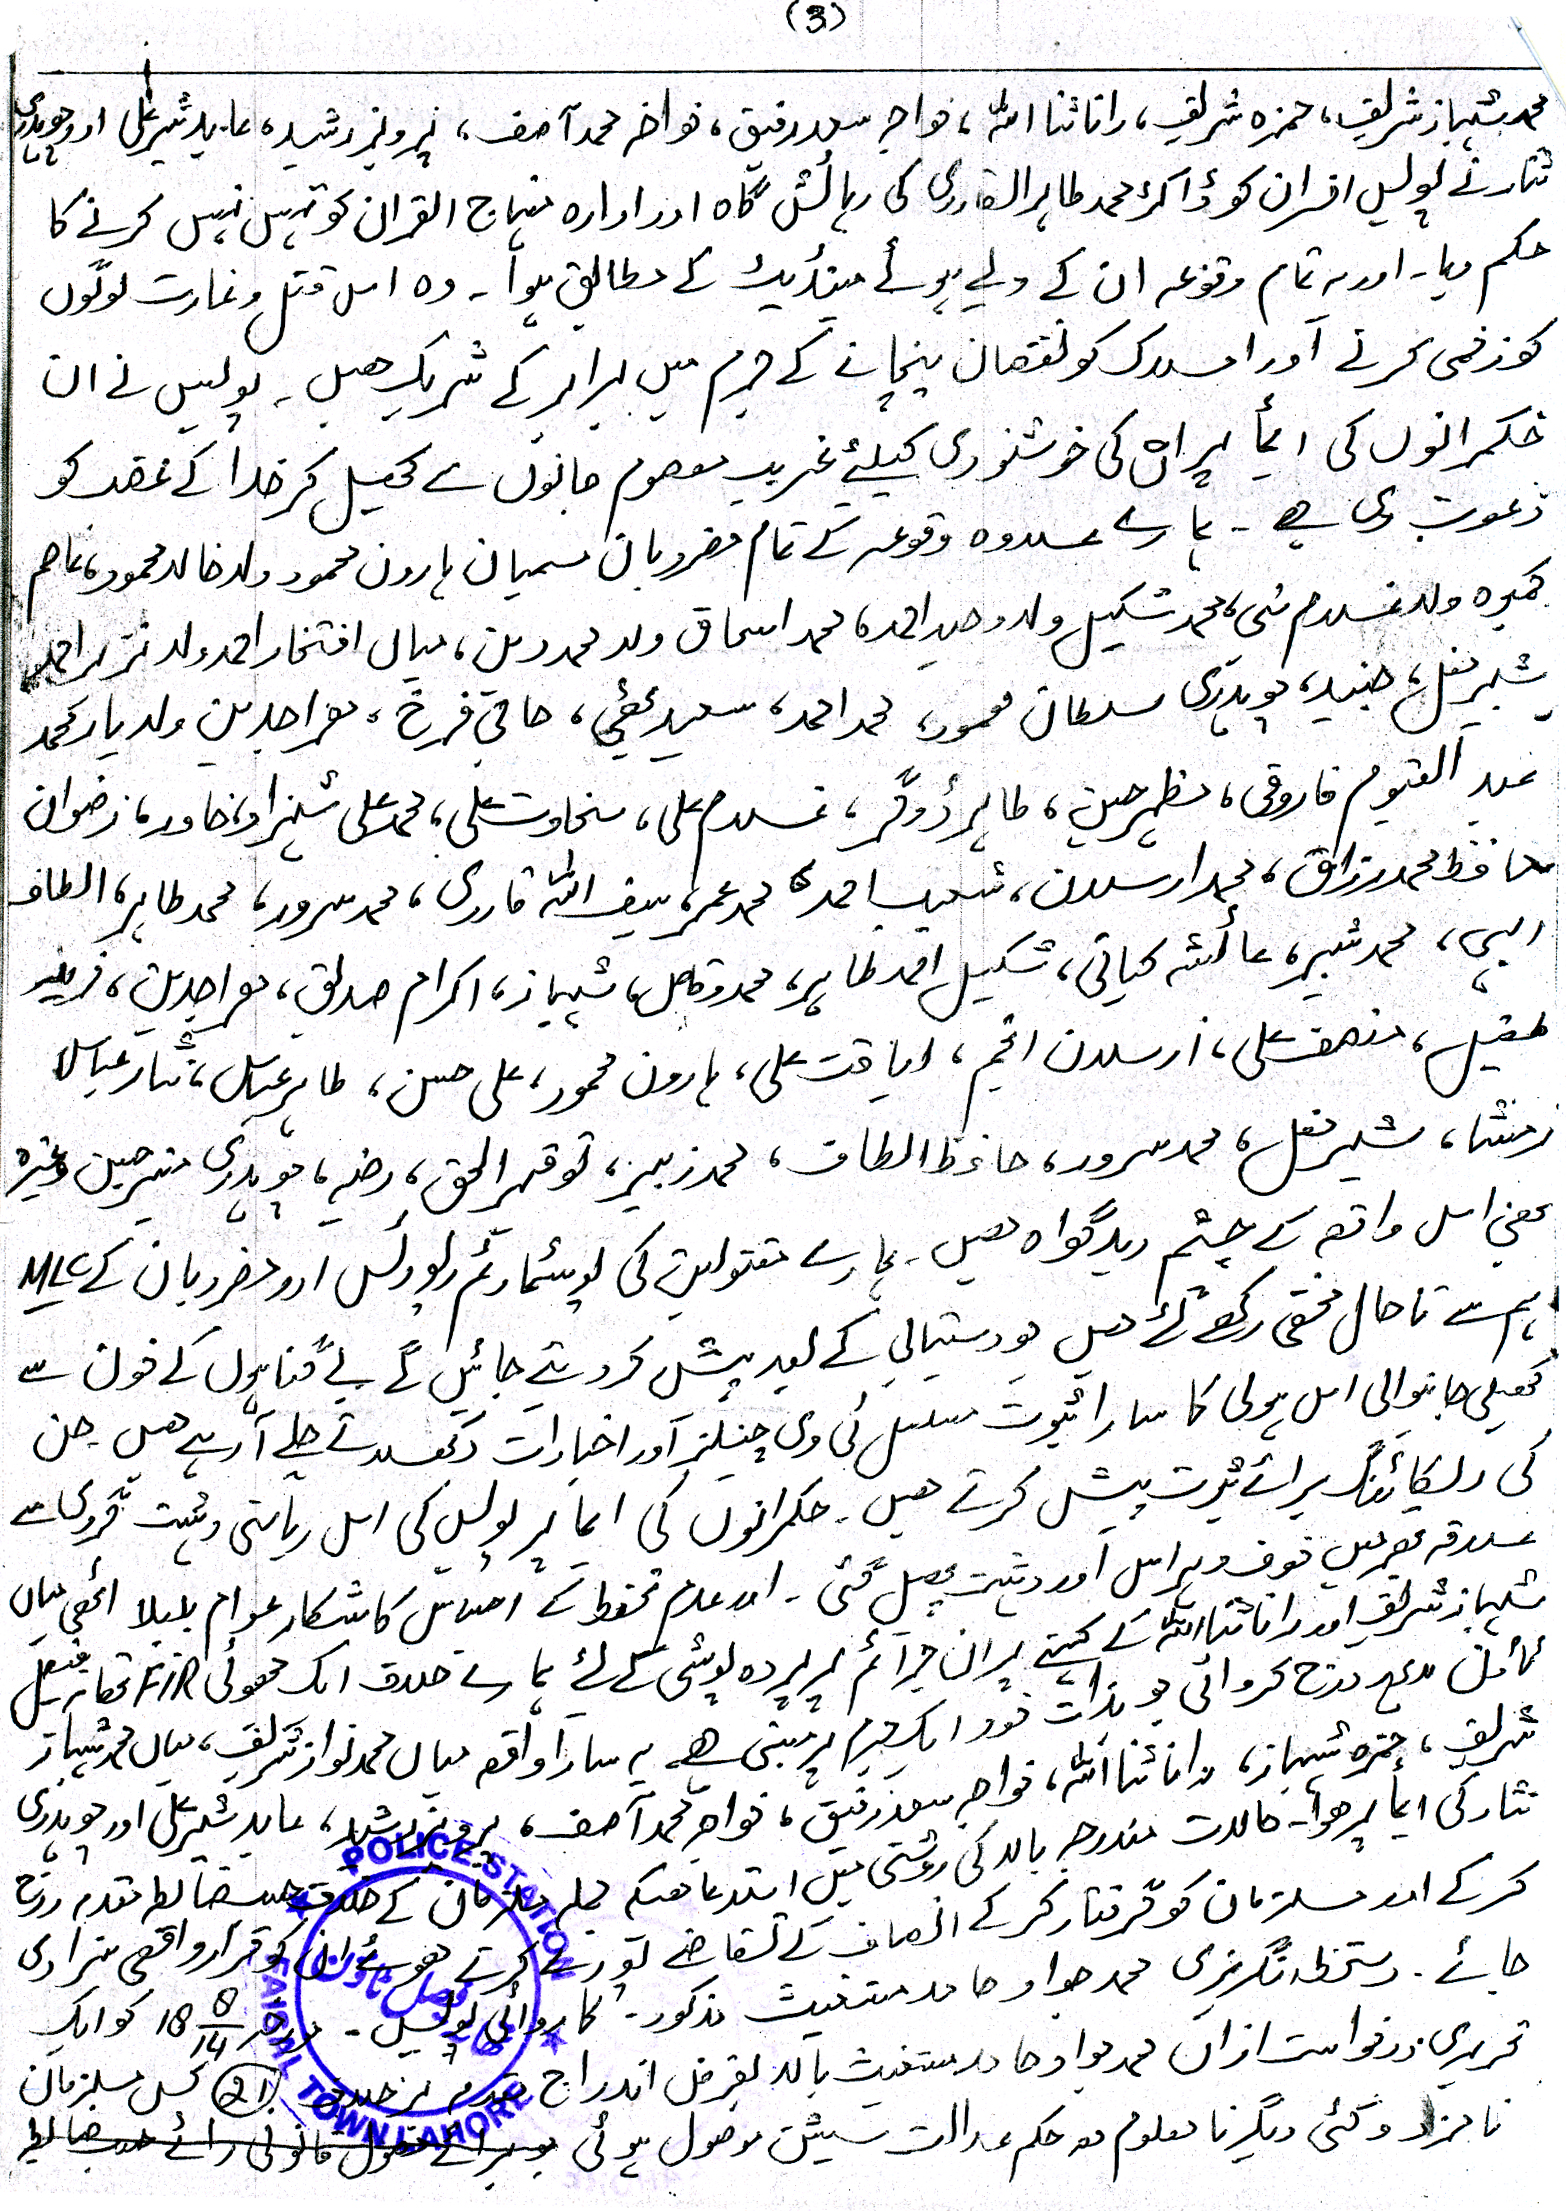 (3)
محمد شہباز شریف، حمزہ شریف، رانا ثنا اللہ، خواجہ سعد رفیق، خواجہ محمد آصف، پرویز رشید، عابد شیر علی اور چوہدری
نثار نے پولیس افسران کو ڈاکٹر محمد طاہر القادری کی رہائش گاہ اور ادارہ منہاج القرآن کو تہس نہس کرنے کا
حکم دیا۔ اور یہ تمام وقوعہ ان کے دیے ہوئے مینڈیٹ کے مطابق ہوا۔ وہ اس قتل و غارت لوگوں
کو زخمی کرنے اور املاک کو نقصان پہنچانے کے جرم میں برابر کے شریک ھیں۔ پولیس نے ان
حکمرانوں کی ایما پر ان کی خوشنودی کیلئے غریب معصوم جانوں سے کھیل کر خدا کے غضب کو
دعوت دی ہے۔ ہمارے علاوہ وقوعہ کے تمام مضروبان مسمیان ہارون محمود ولد خالد محمود، عاصم
ولد غلام نبی، محمد شکیل ولد وحید احمد، محمد اسحاق ولد محمد دین، میاں افتخار احمد ولد نذیر احمد
شبیر مغل، جنید، چوہدری سلطان محمود، محمد احمد، سعید بھٹی، حاجی فرخ، معراجدین ولد یار محمد
عبد القیوم فاروقی، مظہر حسین، طاہر ڈوگر، غلام علی، سخاوت علی، محمد علی شہزاد، خاور، رضوان
حافظ محمد رزاق، محمد ارسلان، شعیب احمد، محمد عمر، سیف اللہ قادری، محمد سرور، محمد طاہر، الطاف
الہی، محمد شبیر، عائشہ کیانی، شکیل احمد طاہر، محمد وقاص، شہباز، اکرام صدیق، معراجدین، فرید
طفیل، منصف علی، ارسلان انجم، لیاقت علی، ہارون محمود، علی حسن، طاہر عباس، نثار عباس
منشا، شبیر مغل، محمد سرور، حافظ الطاف، محمد زبیر، توقیر الحق، رضیہ، چوہدری منیر حسین وغیرہ
بھی اس واقعہ کے چشم دید گواہ ھیں۔ ہمارے مقتولین کی پوسٹمارٹم رپورٹس اور مضروبان کے MLC
ہم سے تاحال مخفی رکھے گئے ھیں جو دستیابی کے بعد پیش کر دیئے جائیں گے بے گناہوں کے خون سے
کھیلی جانیوالی اس ہولی کا سارا ثبوت مسلسل ٹی وی چینلز اور اخبارات دکھلاتے چلے آ رہے ھیں۔ جن
کی ریکارڈنگ برائے ثبوت پیش کرتے ھیں۔ حکمرانوں کی ایما پر پولیس کی اس ریاستی دہشت گردی سے
علاقہ بھر میں خوف و ہراس اور دہشت پھیل گئی۔ اور عدم تحفظ کے احساس کا شکار عوام بلبلا اٹھی میاں
شہباز شریف اور رانا ثنا اللہ کے کہنے پر ان جرائم پر پردہ پوشی کے لئے ہمارے خلاف ایک جھوٹی FIR تھانہ فیصل
ٹاؤن درج کروائی جو بذات خود ایک جرم پر مبنی ھے یہ سارا واقعہ میاں محمد نواز شریف، میاں محمد شہباز
شریف، حمزہ شہباز، رانا ثنا اللہ، خواجہ سعد رفیق، خواجہ محمد آصف، پرویز رشید، عابد شیر علی اور چوہدری
نثار کی ایما پر ھوا۔ حالات مندرجہ بالا کی روشنی میں استدعا ھیکہ جملہ ملزمان کے خلاف حسب ضابطہ مقدمہ درج
کر کے اور ملزمان کو گرفتار کر کے انصاف کے تقاضے پورے کرتے ھوئے ان کو قرار واقعی سزا دی
جائے۔ دستخط انگریزی محمد جواد حامد مستغیث مذکور۔ کاروائی پولیس۔ مورخہ 18 8/14 کو ایک
تحریری درخواست ازاں محمد جواد حامد مستغیث بالا بغرض اندراج مقدمہ برخلاف (21) کس ملزمان
نامزد و کئی دیگر نا معلوم معہ حکم عدالت سیشن موصول ہوئی جو برائے حصول قانونی رائے حسب ضابطہ
POLICE STATION
FAISAL TOWN LAHORE
فیصل ٹاؤن